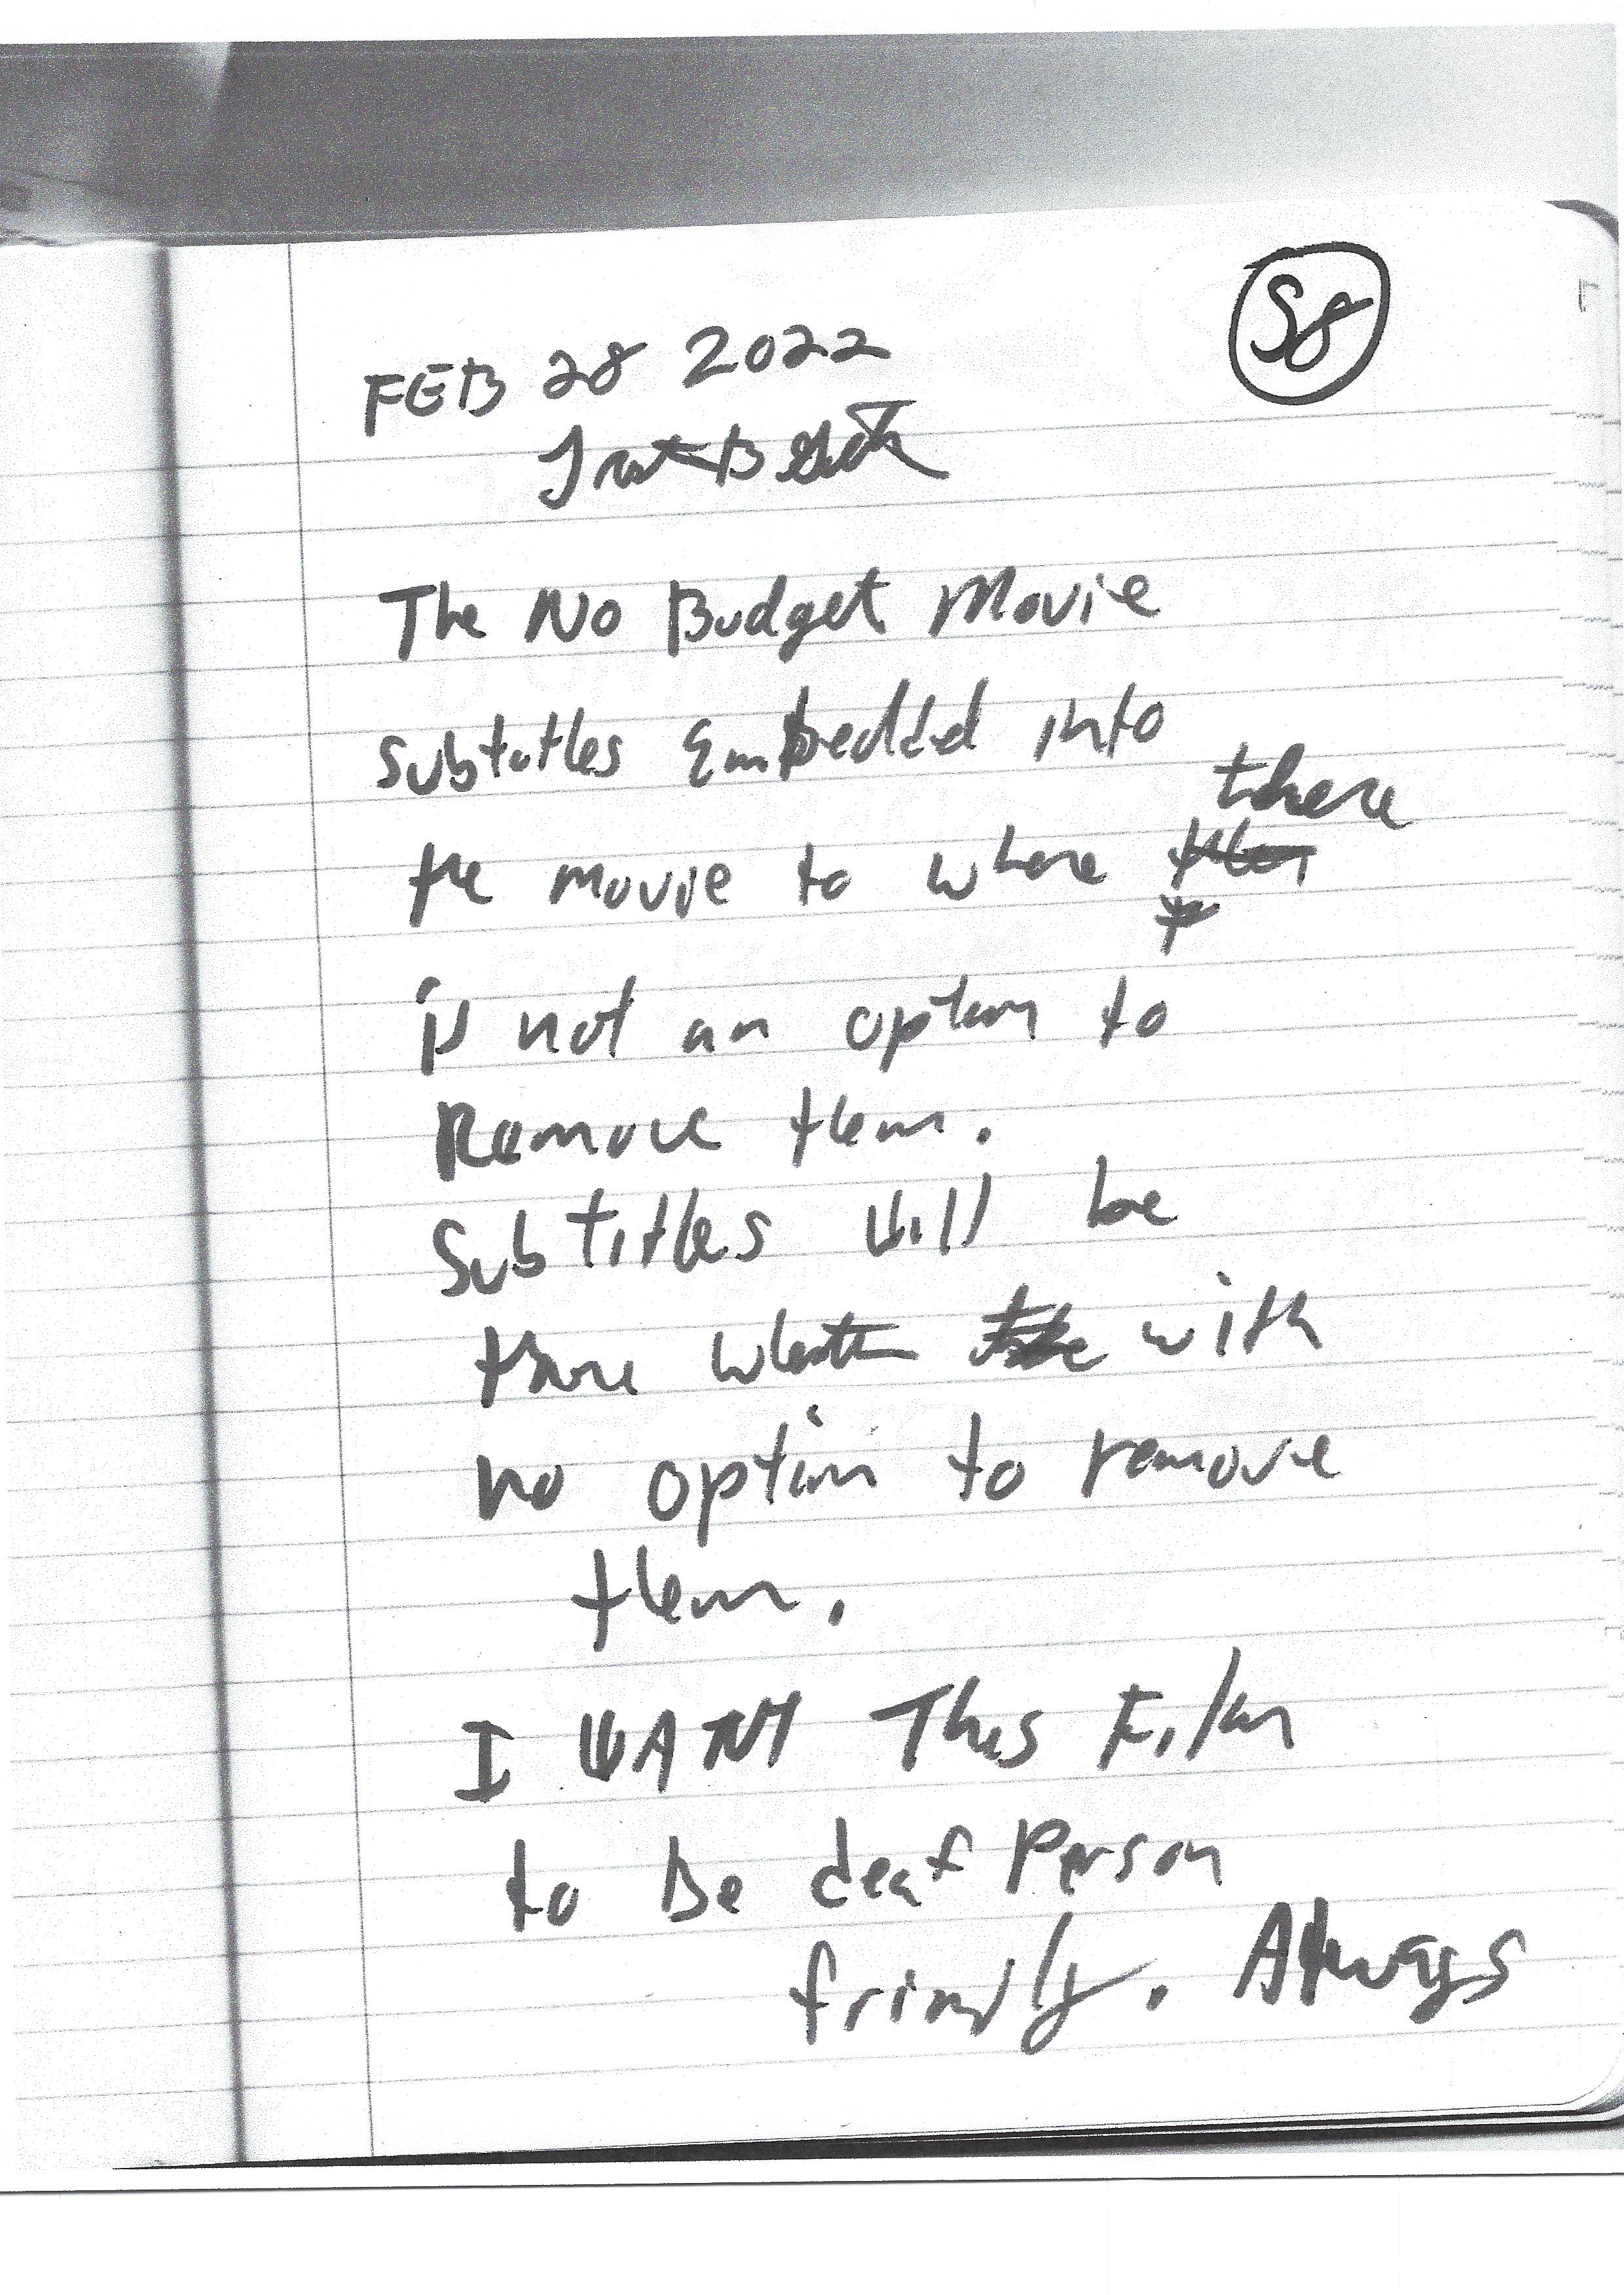 58
FEB 28 2022
The No Budget Movie
Subtitles Embedded into
there
the movie to where
is not an option to
Remove them.
Subtitles will be
there with
no option to remove
them.
I WANT This Film
to Be deaf Person
friendly. Always